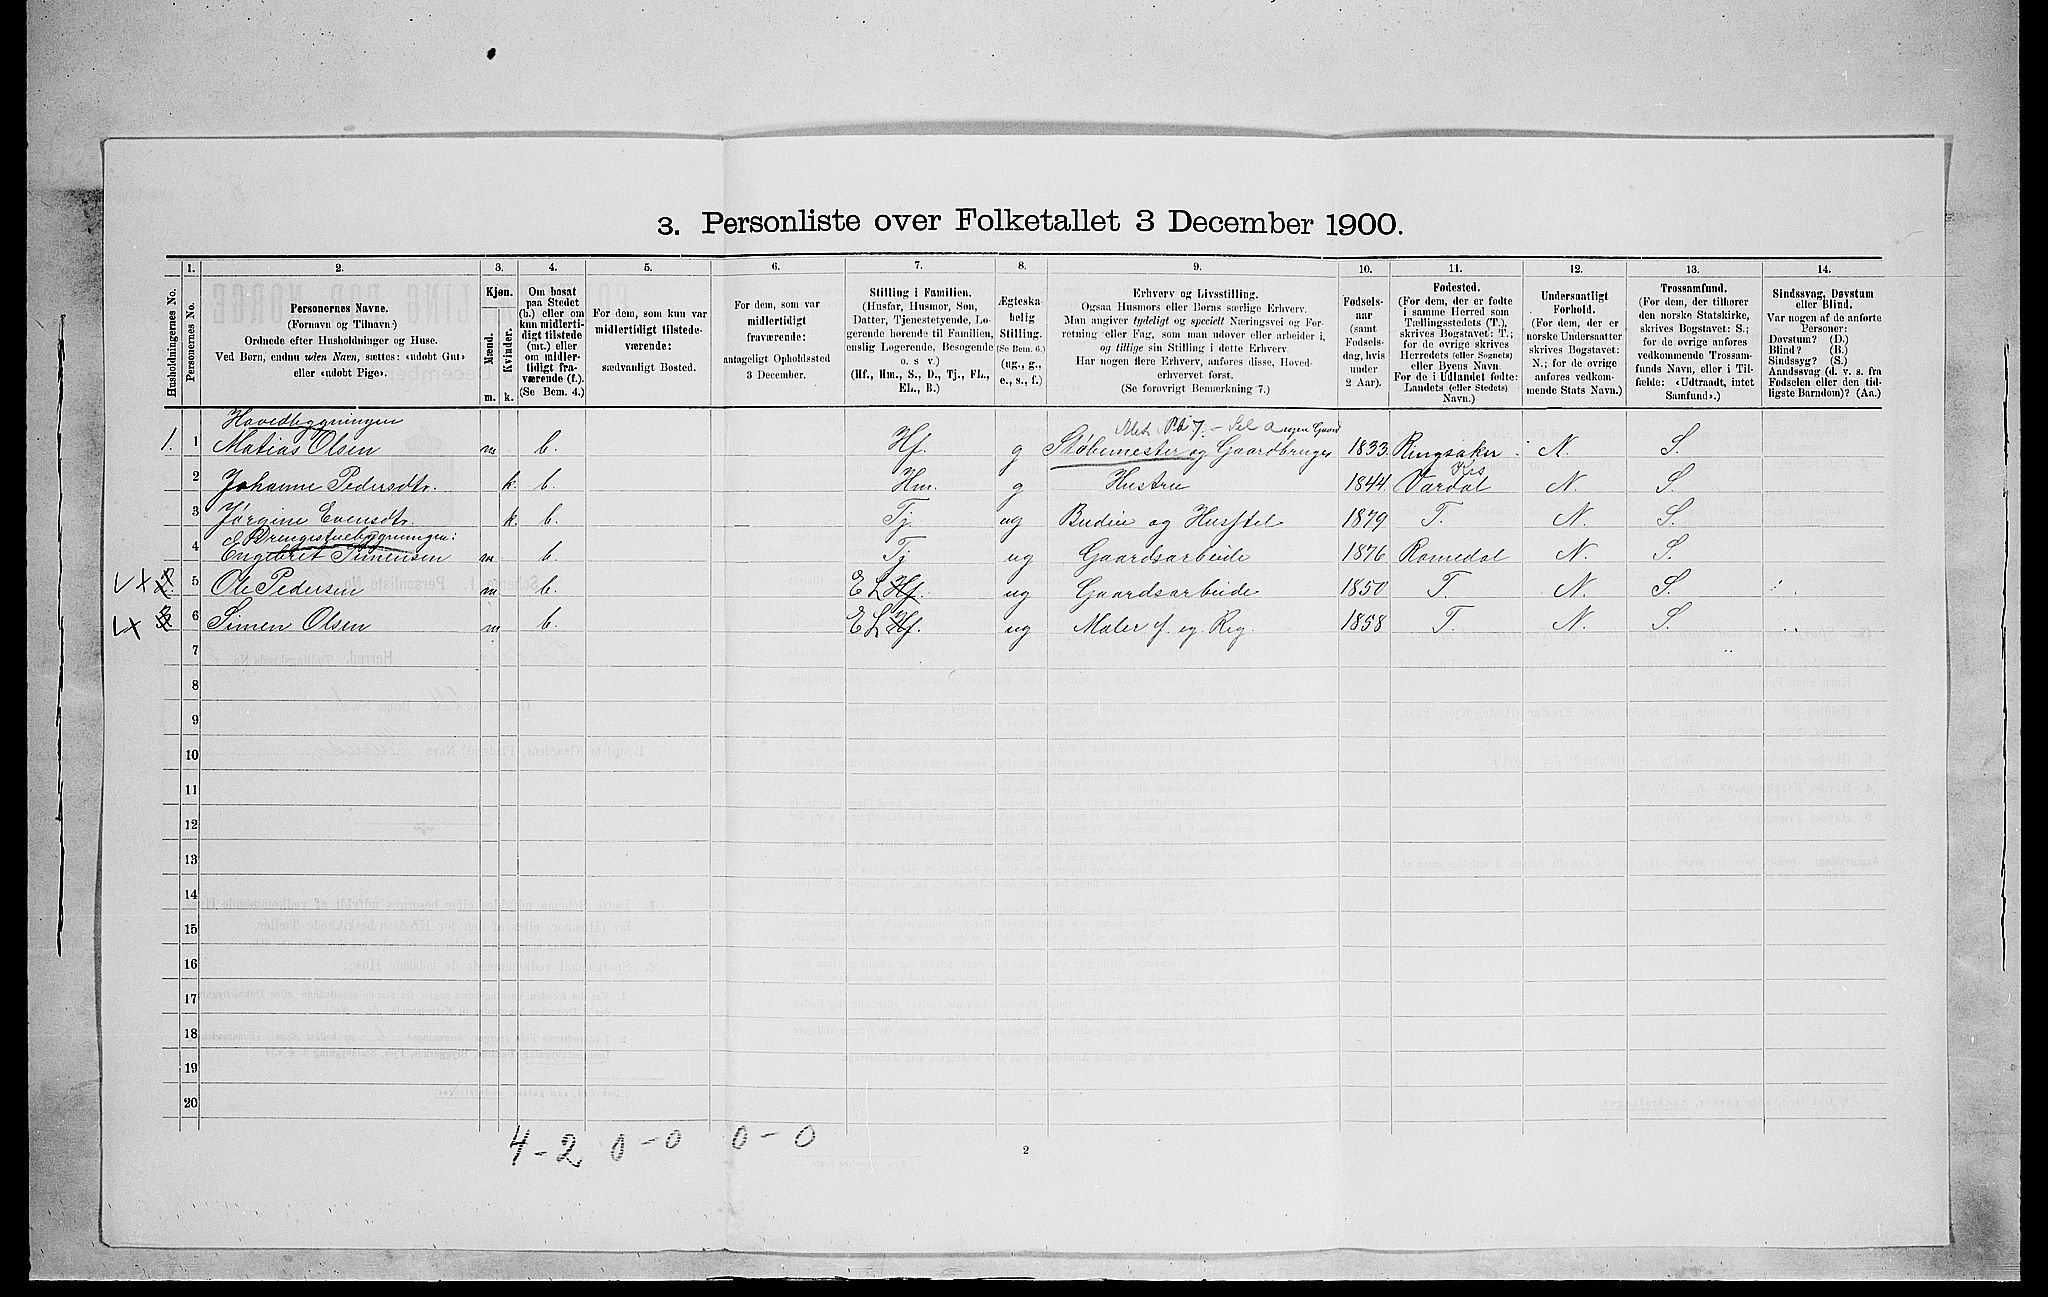 3. Personliste over Folketallet 3 December 1900.
Husholdningernes No.
1.
Personernes No.
2.
Personernes Navne.
(Fornavn og Tilnavn.)
Ordnede efter Husholdninger og Huse.
Ved Børn, endnu uden Navn, sættes: «udøbt Gut»
eller «udøbt Pige».
3.
Kjøn.
Mænd.
Kvinder.
m. k.
4.
Om bosat
paa Stedet
(b.) eller om
kun midlerti-
digt tilstede
(mt.) eller
om midler-
tidigt fra-
værende (f.).
(Se Bem. 4.)
5.
For dem, som kun var
midlertidigt tilstede-
værende:
sædvanligt Bosted.
6.
For dem, som var
midlertidigt
fraværende:
antageligt Opholdssted
3 December.
7.
Stilling i Familien.
(Husfar, Husmor, Søn,
Datter, Tjenestetyende, Lo-
gerende hørende til Familien,
enslig Logerende, Besøgende
o. s v.)
(Hf., Hm., S., D., Tj., FL.,
EL., B.)
8.
Ægteska-
belig
Stilling.
(Se Bem. 6.)
(ug., g.,
e., s., f.)
9.
Erhverv og Livsstilling.
Ogsaa Husmors eller Børns særlige Erhverv.
Man angiver tydeligt og specielt Næringsvei og For-
retning eller Fag, som man udøver eller arbeider i,
og tillige sin Stilling i dette Erhverv.
Har nogen flere Erhverv, anføres disse, Hoved-
erhvervet først.
(Se forøvrigt Bemærkning 7.)
10.
Fødsels-
aar
(samt
Fødsels-
dag, hvis
under
2 Aar).
11.
Fødested.
(For dem, der er fødte
i samme Herred som
Tællingsstedets (T.),
skrives Bogstavet: T.;
for de øvrige skrives
Herredets (eller Sognets)
eller Byens Navn.
For de i Udlandet fødte:
Landets (eller Stedets)
Navn.)
12.
Undersaatligt
Forhold.
(For dem, der er
norske Undersaatter
skrives Bogstavet:
N.; for de øvrige
anføres vedkom-
mende Stats Navn.)
13.
Trossamfund.
(For dem, der tilhører
den norske Statskirke,
skrives Bogstavet: S.;
for de øvrige anføres
vedkommende Trossam-
funds Navn, eller i Til-
fælde: «Udtraadt, intet
Samfund».)
14.
Sindssvag, Døvstum
eller Blind.
Var nogen af de anførte
Personer:
Døvstum? (D.)
Blind? (B.)
Sindssyg? (S.)
Aandssvag (d. v. s. fra
Fødselen eller den tid-
ligste Barndom)? (Aa.)
Hovedbygningen
1. 1 Matias Olsen m. b. Hf. g Støbemester og Gaardbruger 1833 Ringsaker N. S.
2 Johanne Pedersdtr. k. b. Hm. g Hustru 1844 Vardal Krs N. S.
3 Jørgine Evensdtr. k. b. Tj. ug Budeie og Husstel 1879 T. N. S.
Drengestuebygningen:
4 Engebret Simensen m. b. Tj ug Gaardsarbeide 1876 Romedal N. S.
2. 5 Ole Pedersen m b. E L Hf. ug Gaardsarbeide 1850 T. N. S.
3 6 Simen Olsen m b. E L Hf. ug Maler f. eg. Reg. 1858 T. N. S.
7
8
9
10
11
12
13
14
15
16
17
18
19
20
4-2 0-0 0-0
2